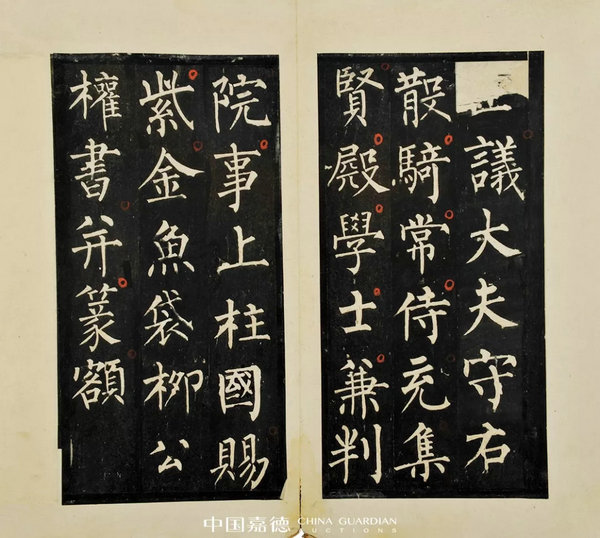 議大夫守右
散騎常侍充集
賢殿學士兼判
院事上柱國賜
紫金魚袋柳公
權書并篆額
中国嘉德 CHINA GUARDIAN
AUCTIONS